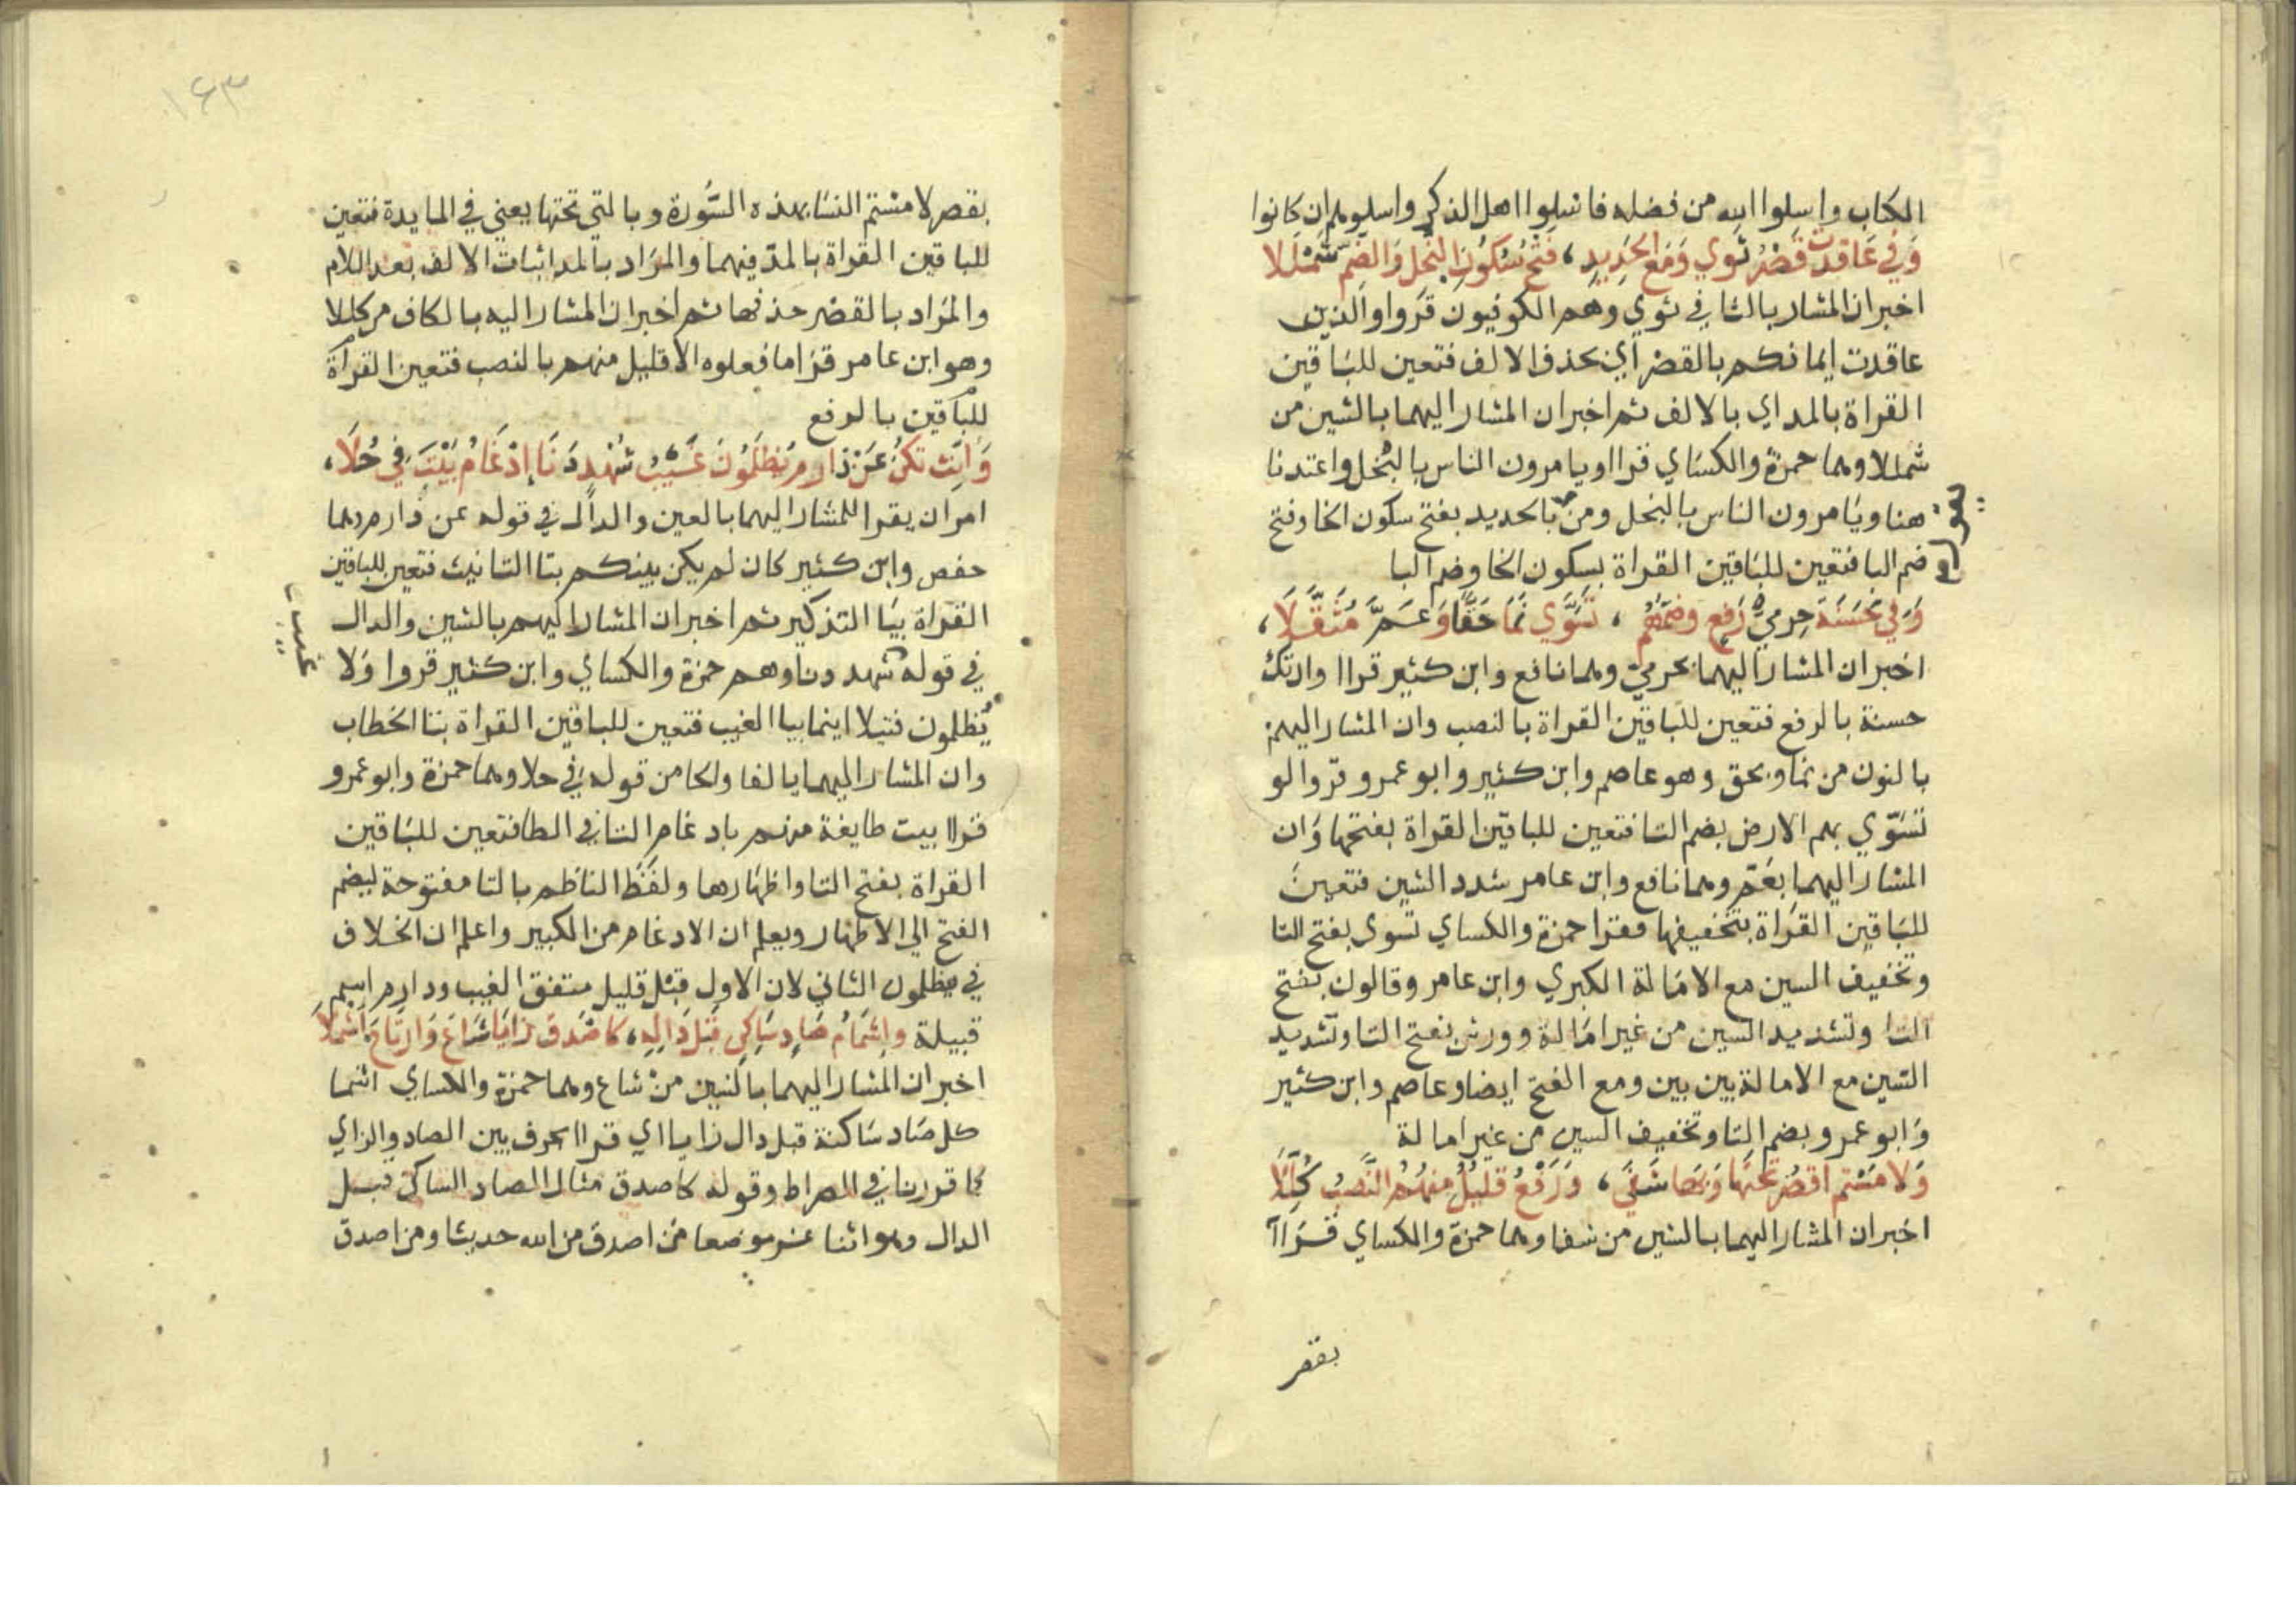 الكتاب واسلوا الله من فضله فاسلوا اهل الذكر واسلوهم ان كانوا
وَفي عَاقدت قَصْرٌ ثَوي وَمَع الحَدِيدِ، فَتْحُ سُكُونِ البُخْلِ وَالضَّمِّ شَمْلَلا
اخبر ان المشار بالثا في ثوي وهم الكوفيون قرواوالذين
عاقدت ايمانكم بالقصر أي بحذف الالف فتعين للباقين
القراة بالمد اي بالالف ثم اخبر ان المشار اليهما بالشين من
شمللا وهما حمزة والكساي قرا اويامرون الناس بالبخل واعتدنا
هنا ويامرون الناس بالبخل ومن بالحديد بفتح سكون الخا وفتح
ضم البا فتعين للباقين القراة بسكون الخا وضم البا
وَفي حَسَنَة حِرميُّ رَفع وضَمُّهُم، تَسَوَّي نَمَا حَقًّا وَعَمَّ مُثَقَّلَا،
اخبر ان المشار اليهما بحرمي وهما نافع وابن كثير قراا وان تك
حسنة بالرفع فتعين للباقين القراة بالنصب وان المشار اليهم
بالنون من نما وبحق وهو عاصم وابن كثير وابو عمرو قروا لو
تسوّي بهم الارض بضم التا فتعين للباقين القراة بفتحها وَان
المشار اليهما بعَمّ وهما نافع وابن عامر شدد السين فتعين
للباقين القراة بتخفيفها فقرا حمزة والكساي تسوى بفتح التا
وتخفيف السين مع الامالة الكبري وابن عامر وقالون بفتح
التا وتشديد السين من غير امَالة وورش بفتح التا وتشديد
السين مع الامالة بين بين ومع الفتح ايضا وعاصم وابن كثير
وَابو عمرو بضم التا وتخفيف السين من غير امالة
وَلامَسْتم اقصُر تحتَهَا وَبهَا شَفَي، وَرَفْعُ قليلٌ منهُمُ النَّصبُ كُلِّلَا
اخبر ان المشار اليهما بالشين من شفا وهما حمزة والكساي قراا
بقصر
١٤٣
بقصر لامستم النسا بهذه السُّورة وبالتي تحتها يعني في المايدة فتعين
للباقين القراة بالمدّ فيهما والمرَاد بالمد اثبات الالف بعد اللام
والمرَاد بالقصْر حذفها ثم اخبر ان المشار اليه بالكاف من كللا
وهو ابن عامر قرَا ما فعلوه الا قليل منهم بالنصب فتعين القراة
للباقين بالرفع
وَانِّث تكنُ عَنْ دَارم تُظلَمُونَ غَيْبُ شُهْدٍ دَنَا إِدْغَامُ بَيَّتَ فِي حُلَا،
امر ان يقرا للمشار اليهما بالعين والدال في قوله عن دارم وهما
حفص وابن كثير كان لم يكن بينكم بتا التانيث فتعين للباقين
القراة بيَا التذكير ثم اخبر ان المشار اليهم بالشين والدال
في قوله شهد دنا وهم حمزة والكساي وابن كثير قروا وَلا
يُظلمون فتيلا اينما بيا الغيب فتعين للباقين القراة بتا الخطاب
غيب
وان المشار اليهما بالفا والحا من قوله في حلا وهما حمزة وابو عمرو
قراا بيت طايفة منهم باد غام التا في الطا فتعين للباقين
القراة بفتح التا واظهارها ولفَظ الناظم بالتا مفتوحة ليضم
الفتح الي الاظهار ويعلم ان الادغام من الكبير واعلم ان الخلاف
في يظلمون الثاني لان الاول قبل قليل متفق الغيب ودارم اسم
قبيلة واشمَامُ صَادٍ سَاكِنٍ قَبْلَ دَالِهِ، كاصْدَق زايًا شَاعَ وَارتَاحَ اَشْمُلاَ
اخبر ان المشار اليهما بالشين من شاع وهما حمزة والكساي اشما
كل صَاد سَاكنة قبل دال زايا اي قراا بحرف بين الصاد والزاي
كما قررنا في الصراط وقوله كاصدق مثال الصاد الساكن قبل
الدال وهو اثنا عشر موضعا من اصدق من الله حديثا ومن اصدق